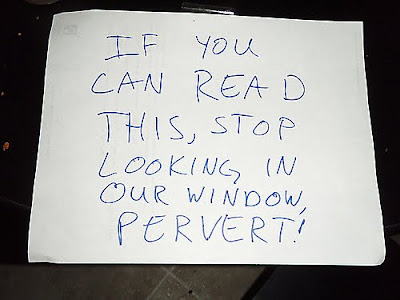 IF YOU
CAN READ
THIS, STOP
LOOKING IN
OUR WINDOW,
PERVERT!